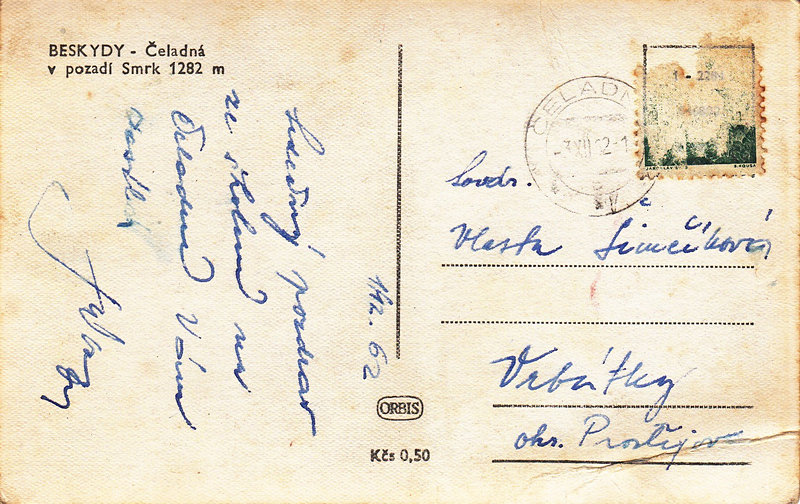 BESKYDY - Čeladná
v pozadí Smrk 1282 m
Srdečný pozdrav
ze školení na
Čeladné Vám
zasílá
1/12. 62
ORBIS
Kčs 0,50
ČELADNÁ
Soudr.
Vlasta Šimčíková
Vrbátky
okr. Prostějov